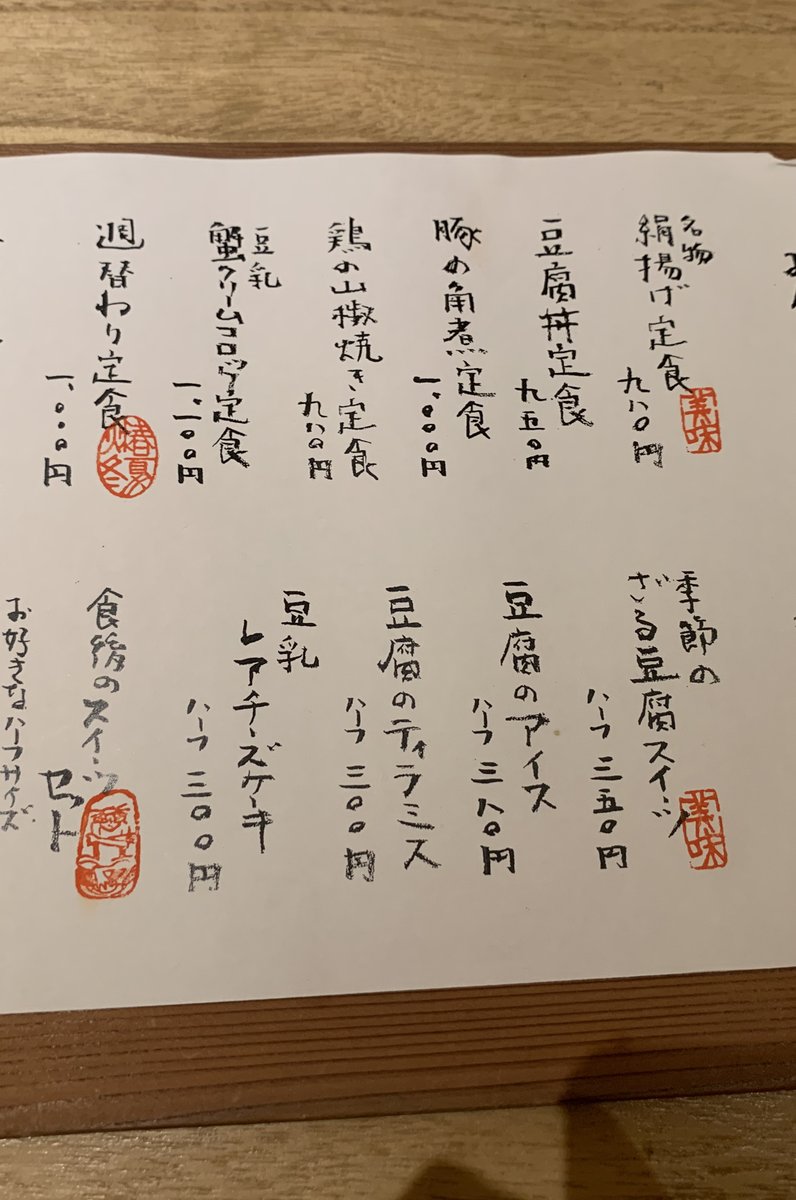 名物
絹揚げ定食
九八〇円
美味
豆腐丼定食
九五〇円
豚の角煮定食
一、〇〇〇円
鶏の山椒焼き定食
九八〇円
豆乳
蟹クリームコロッケ定食
一、一〇〇円
週替わり定食
春夏秋冬
一、〇〇〇円
季節の
ざる豆腐スイーツ
美味
ハーフ 三五〇円
豆腐のアイス
ハーフ 三八〇円
豆腐のティラミス
ハーフ 三〇〇円
豆乳
レアチーズケーキ
ハーフ 三〇〇円
食後のスイーツ
セット
お好きなハーフサイズ